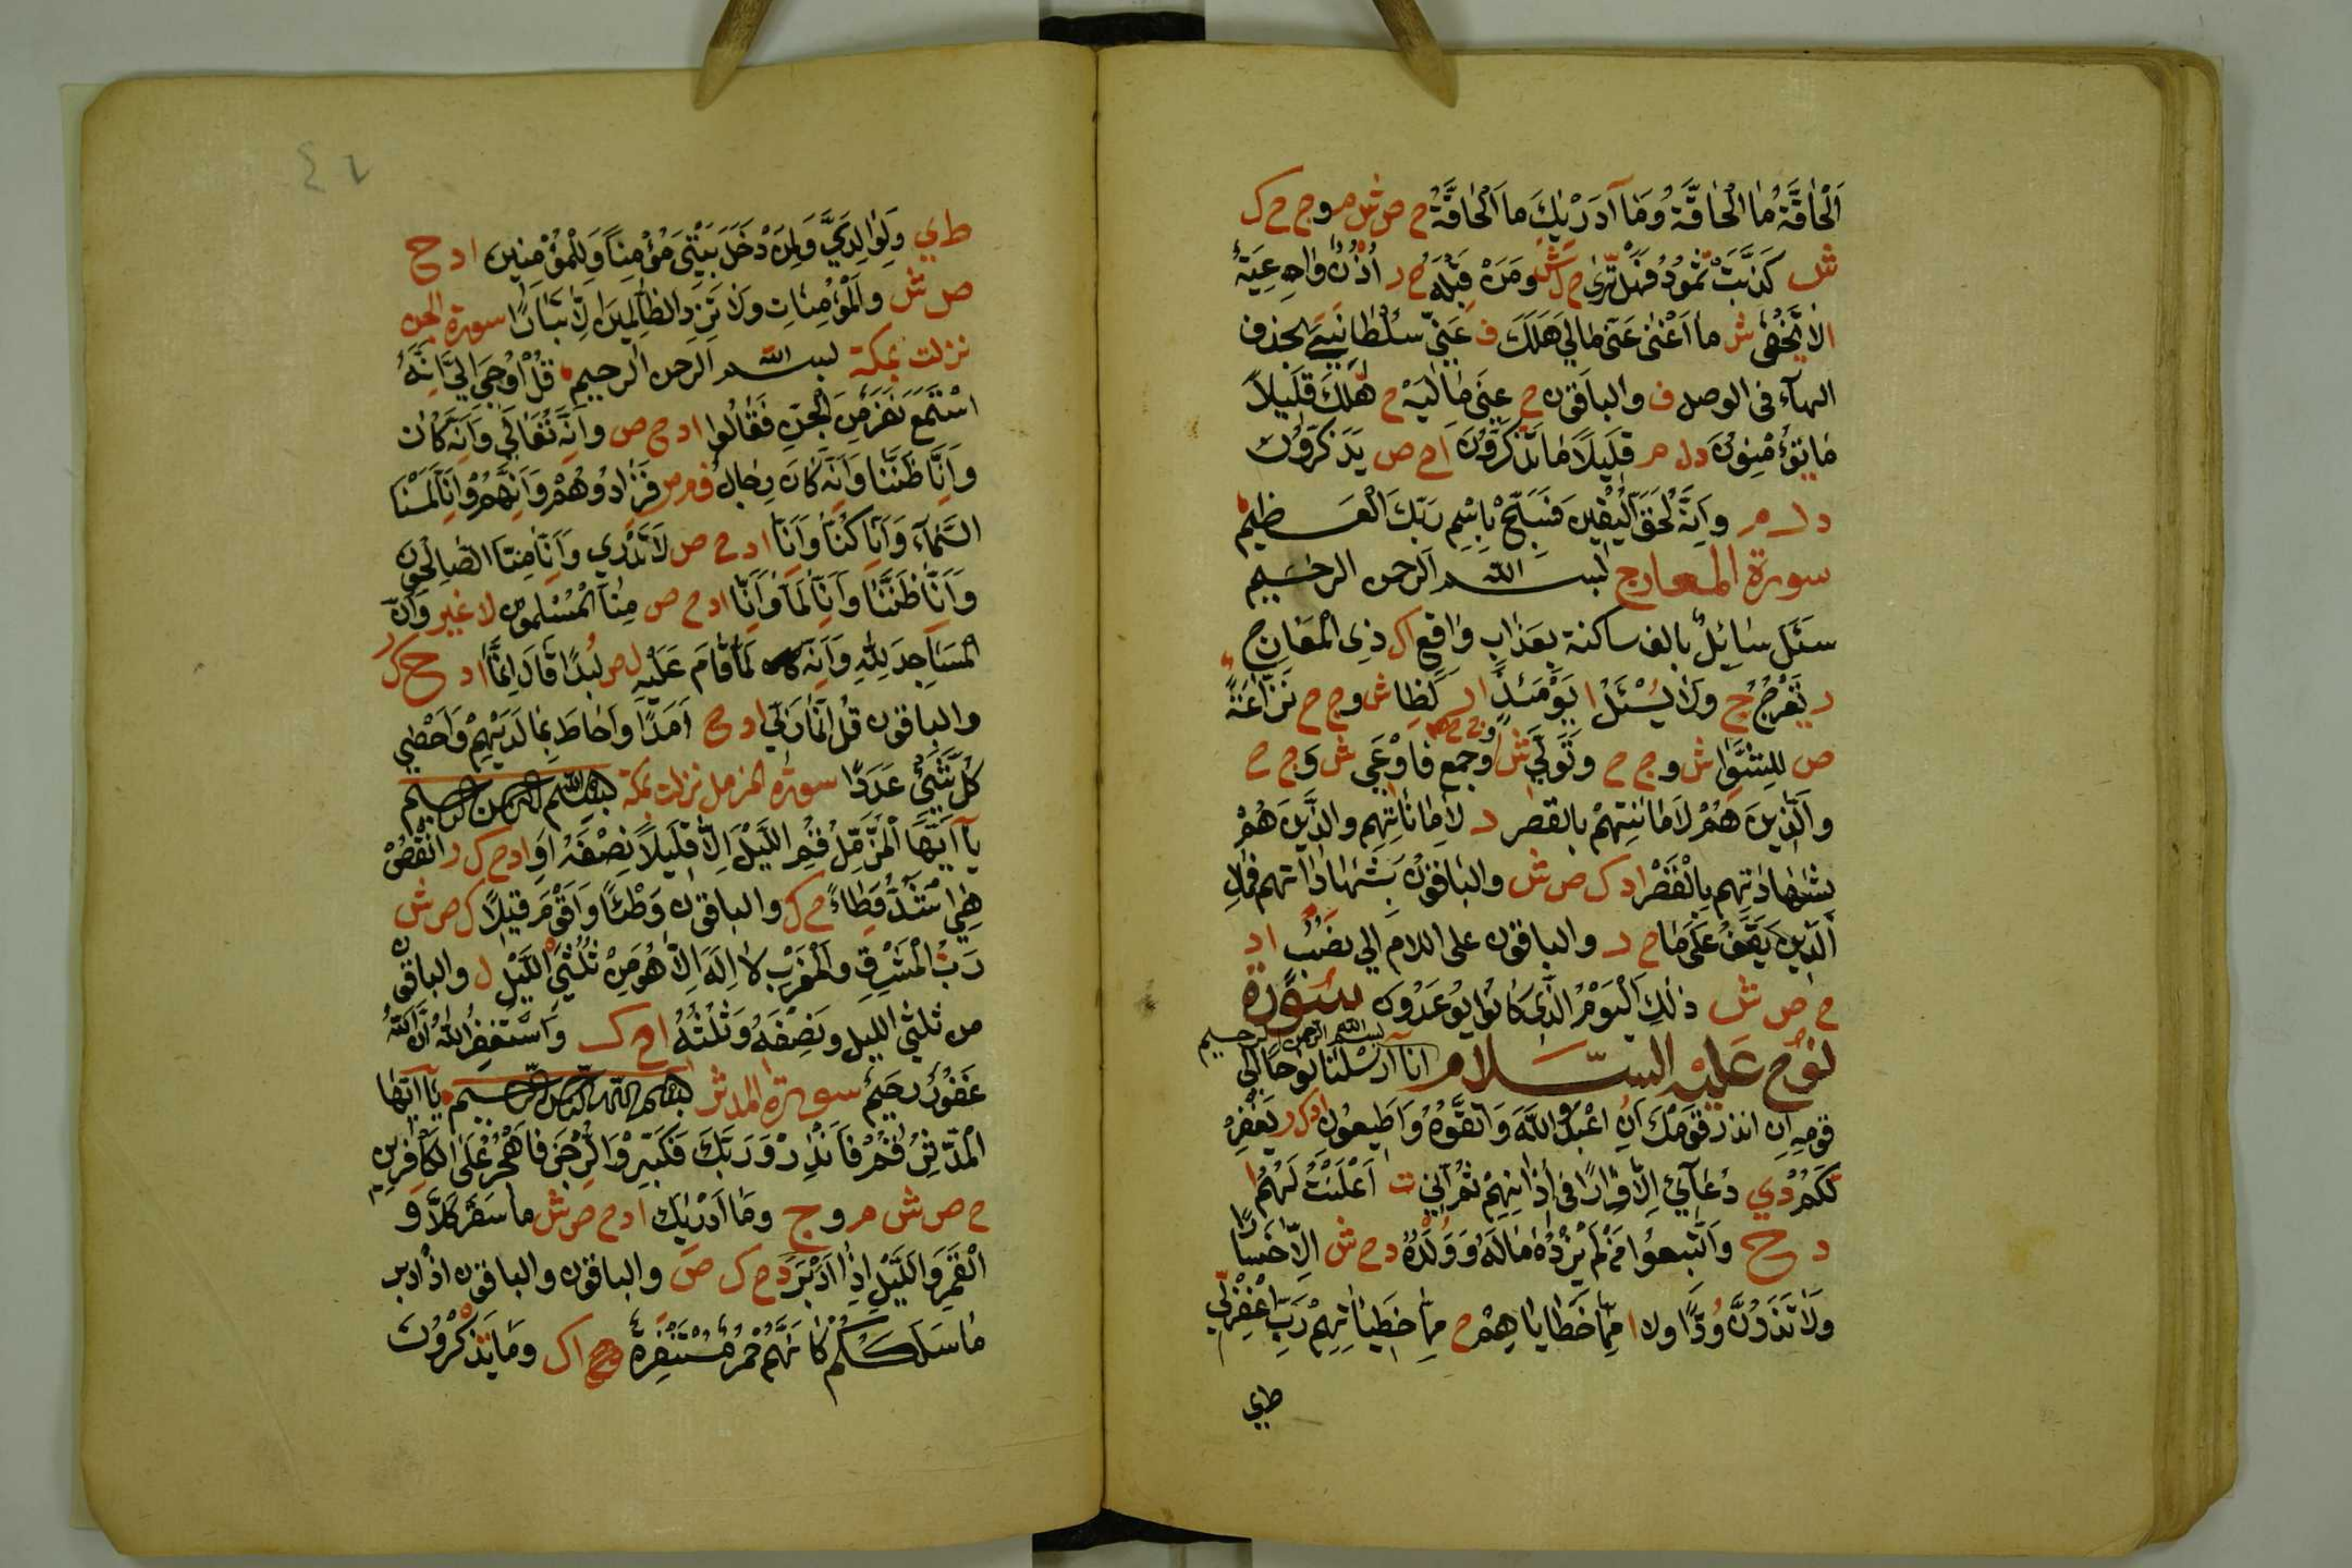 اَلْحَاقَّةُ مَا الْحَاقَّةُ وَمَا آدَرٰيكَ مَا اَلْحَاقَّةُ ح ص ش م و ج ح ك
ش كَذَّبَتْ ثَمُودُ فَهَلْ تَرٰى ح ل ش وَمَنْ قِبَلَهُ ح ر اُذُنٌ وَاعِيَةٌ
لَا يَخْفٰى ش مَا اَغْنٰى عَنّى مَالِي هَلَكَ ف عَنّي سُلْطَانِيَ بحذف
الهآء فى الوصل ف والباقون ح عَنّى مَالِيَهْ ح هَلَكَ قَلِيلاً
مَا تُؤْمِنُونَ د ل م قَلِيلاً مَا تَذَكَّرُونَ ا ح ص يَذَّكَّرُونَ
د ل م وَاِنَّهُ لَحَقُّ الْيَقِينِ فَسَبِّحْ بِاسْمِ رَبِّكَ الْعَظِيمِ
سورة المعارج بسم الله الرحمن الرحيم
سَئَلَ سَائِلٌ بالف ساكنة بِعَذَابٍ وَاقِعٍ ا ك ذِى الْمَعَارِجِ
ر تَعْرُجُ ج وَلَا يَسْئَلُ ا يَوْمَئِذٍ ا ر لَظٰى ش و ج ح نَزَّاعَةً
ص لِلشَّوٰى ش و ج ح وَتَوَلّٰى ش و ج ح وَجَمَعَ فَاَوْعٰى ش و ج ح
وَالَّذِينَ هُمْ لِاَمَانَتِهِمْ بالقصر د لِاَمَانَاتِهِمْ وَالَّذِينَ هُمْ
بِشَهَادَتِهِمْ بِالْقَصْرِ ا د ك ص ش والباقون بِشَهَادَاتِهِمْ فَمَالِ
الَّذِينَ يَقِفُ عَلٰى مَا ح ر والباقون على اللام اِلٰى نَصْبٍ ا د
ح ص ش ذٰلِكَ الْيَوْمُ الَّذِى كَانُوا يُوعَدُونَ سورة
نوح عليه السلام بسم الله الرحمن الرحيم اِنَّا اَرْسَلْنَا نُوحًا اِلٰى
قَوْمِهِ اَنْ اَنْذِرْ قَوْمَكَ اَنِ اعْبُدُوا اللّٰهَ وَاتَّقُوهُ وَاَطِيعُونِ ا د ك ر يَغْفِرْ
لَكُمْ د ي دُعَآئِي اِلَّا فِرَارًا فِى اٰذَانِهِمْ ثُمَّ اِنّي ت اَعْلَنْتُ لَهُمْ ا
د ح وَاتَّبَعُوا مَنْ لَمْ يَزِدْهُ مَالُهُ وَوُلْدُهُ د ح ش اِلَّا خَسَارًا
وَلَا تَذَرُنَّ وُدًّا وَلَا ا مِمَّا خَطَايَاهُمْ ح مِمَّا خَطِيئَاتِهِمْ رَبِّ اغْفِرْ لِي
ط ي
٤٦
ط ي وَلِوَالِدَيَّ وَلِمَنْ دَخَلَ بَيْتِيَ مُؤْمِنًا وَلِلْمُؤْمِنِينَ ا د ح
ص ش وَالْمُؤْمِنَاتِ وَلَا تَزِدِ الظَّالِمِينَ اِلَّا تَبَارًا سورة الجن
نزلت بمكة بسم الله الرحمن الرحيم قُلْ اُوحِيَ اِلَيَّ اَنَّهُ
اسْتَمَعَ نَفَرٌ مِنَ الْجِنِّ فَقَالُوا ا د ح ص وَاِنَّهُ تَعَالٰى وَاِنَّهُ كَانَ
وَاِنَّا ظَنَنَّا وَاِنَّهُ كَانَ رِجَالٌ ف م ر فَزَادُوهُمْ وَاِنَّهُمْ وَاِنَّا لَمَسْنَا
السَّمَآءَ وَاِنَّا كُنَّا وَاِنَّا ا د ح ص لَا نَدْرِي وَاِنَّا مِنَّا الصَّالِحُونَ
وَاَنَّا ظَنَنَّا وَاِنَّا لَمَّا وَاِنَّا ا د ح ص مِنَّا الْمُسْلِمُونَ لا غير وَاَنَّ
الْمَسَاجِدَ لِلّٰهِ وَاِنَّهُ لَمَّا قَامَ عَلَيْهِ ل ص لُبَدًا قَالَ اِنَّمَا ا د ح ك ر
والباقون قُلْ اِنَّمَا رَبّي ا د ح اَمَدًا وَاَحَاطَ بِمَا لَدَيْهِمْ وَاَحْصٰى
كُلَّ شَيْئٍ عَدَدًا سورة المزمل نزلت بمكة بسم الله الرحمن الرحيم
يَآ اَيُّهَا الْمُزَّمِّلُ قُمِ اللَّيْلَ اِلَّا قَلِيلاً نِصْفَهُ اَوُ ا د ح ك ر انْقُصْ
هِيَ اَشَدُّ وِطَاءً ح ك والباقون وَطْئًا وَاَقْوَمُ قِيلاً ك ص ش
رَبِّ الْمَشْرِقِ وَالْمَغْرِبِ لَا اِلٰهَ اِلَّا هُوَ مِنْ ثُلْثَيِ اللَّيْلِ ل والباقون
من ثلثى الليل وَنِصْفِهِ وَثُلُثِهِ ا ح ك وَاسْتَغْفِرُوا اللّٰهَ اِنَّ اللّٰهَ
غَفُورٌ رَحِيمٌ سورة المدثر بسم الله الرحمن الرحيم يَآ اَيُّهَا
الْمُدَّثِّرُ قُمْ فَاَنْذِرْ وَرَبَّكَ فَكَبِّرْ وَالرِّجْزَ فَاهْجُرْ عَلَى الْكَافِرِينَ
ح ص ش م و ج وَمَا اَدْرٰيكَ ا د ح ص ش مَا سَقَرُ كَلَّا وَ
الْقَمَرِ وَاللَّيْلِ اِذَا اَدْبَرَ د ح ك ص والباقون والباقون اذ ادبر
مَا سَلَكَكُمْ كَاَنَّهُمْ حُمُرٌ مُسْتَنْفِرَةٌ ا ك وَمَا يَذْكُرُونَ